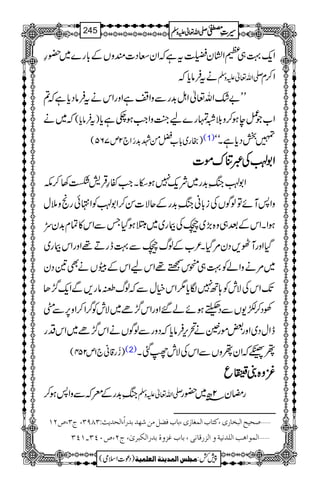 سیرتِ مصطفیٰ صلی اللہ تعالیٰ علیہ وسلم 245
ایک بہت ہی عظیم الشان فضیلت یہ ہے کہ ان سعادت مندوں کے بارے میں حضور
اکرم صلی اللہ تعالیٰ علیہ وسلم نے یہ فرمایا کہ
’’بے شک اللہ تعالیٰ اہل بدر سے واقف ہے اور اس نے یہ فرما دیا ہے کہ تم
اب جو عمل چاہو کرو بلاشبہ تمہارے لیے جنت واجب ہو چکی ہے یا (یہ فرمایا) کہ میں نے
تمہیں بخش دیا ہے۔‘‘(1) (بخاری باب فضل من شہد بدرا ج۲ ص۵۶۷)
ابو لہب کی عبرتناک موت
ابو لہب جنگِ بدر میں شریک نہیں ہو سکا۔ جب کفارِ قریش شکست کھا کر مکہ
واپس آئے تو لوگوں کی زبانی جنگِ بدر کے حالات سن کر ابو لہب کو انتہائی رنج و ملال
ہوا۔ اس کے بعد ہی وہ بڑی چیچک کی بیماری میں مبتلا ہو گیا جس سے اس کا تمام بدن سڑ
گیا اور آٹھویں دن مر گیا۔ عرب کے لوگ چیچک سے بہت ڈرتے تھے اور اس بیماری
میں مرنے والے کو بہت ہی منحوس سمجھتے تھے اس لیے اس کے بیٹوں نے بھی تین دن
تک اس کی لاش کو ہاتھ نہیں لگایا مگر اس خیال سے کہ لوگ طعنہ ماریں گے ایک گڑھا
کھود کر لکڑیوں سے دھکیلتے ہوئے لے گئے اور اس گڑھے میں لاش کو گرا کر اوپر سے مٹی
ڈال دی اور بعض مورخین نے تحریر فرمایا کہ دور سے لوگوں نے اس گڑھے میں اس قدر
پتھر پھینکے کہ ان پتھروں سے اس کی لاش چھپ گئی۔(2) (زُرقانی ج۱ ص۴۵۲)
غزوۂ بنی قینقاع
رمضان ۲ھ میں حضور صلی اللہ تعالیٰ علیہ وسلم جنگِ بدر کے معرکہ سے واپس ہو کر
......صحیح البخاری، کتاب المغازی، باب فضل من شهد بدرا، الحدیث:۳۹۸۳، ج۳، ص۱۲
......المواهب اللدنیة و الزرقانی ، باب غزوة بدر الکبری، ج۲، ص۳۴۰۔۳۴۱
پیش کش: مجلس المدینة العلمیة (دعوتِ اسلامی)